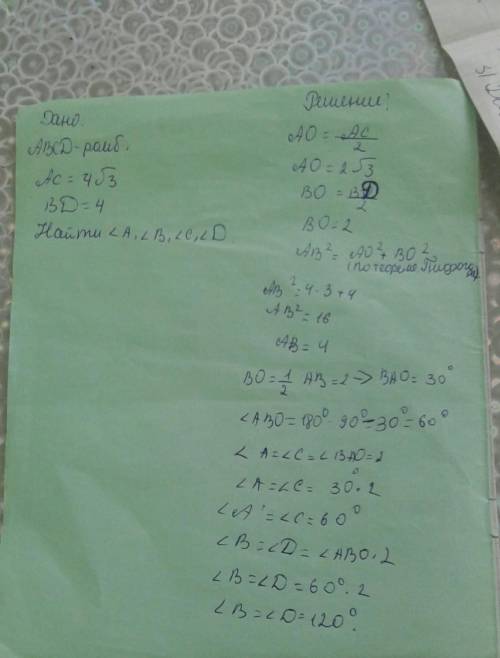 Дано.
ABCD-ромб.
AC = 4√3
BD = 4
Найти ∠A, ∠B, ∠C, ∠D
Решение:
AO = AC/2
AO = 2√3
BO = BD/2
BO = 2
AB² = AO² + BO²
(по теореме Пифагора)
AB² = 4·3+4
AB² = 16
AB = 4
BO = 1/2 AB = 2 → BAO = 30°
∠ABO = 180° - 90° - 30° = 60°
∠A = ∠C = ∠BAO = 2
∠A = ∠C = 30·2
∠A = ∠C = 60°
∠B = ∠D = ∠ABO·2
∠B = ∠D = 60°·2
∠B = ∠D = 120°.